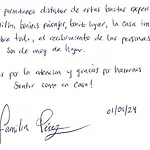 permitirnos disfrutar de estas bonitas exper
bonitos paisajes, bonito lugar, la casa in
bre todo, el recibimiento de las personas
son de muy de hogar.
por la atencion y gracias por hacernos
Sentir como en casa!
01/01/24
Familia Pérez